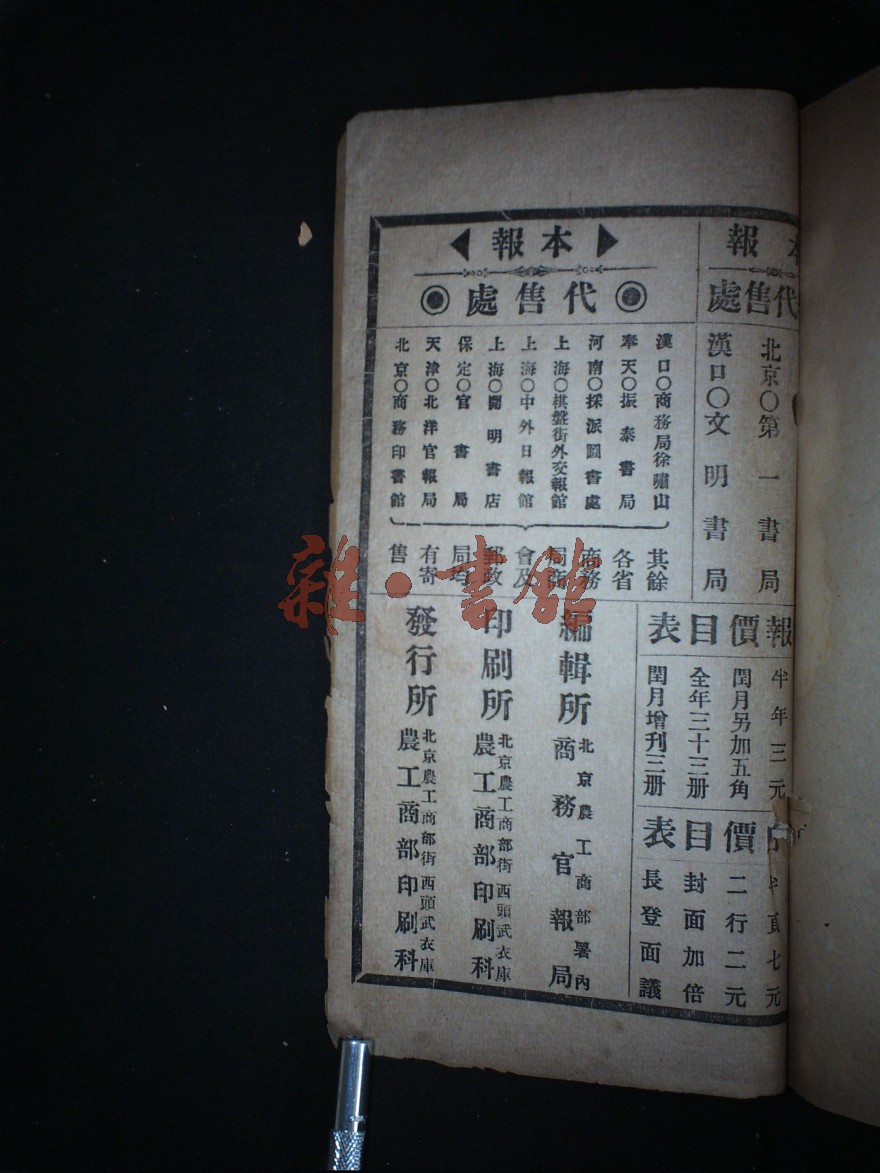 本報
代售處
北京〇第一書局
漢口〇文明書局
報價目表
半年三元
閏月另加五角
全年三十三册
閏月增刊三册
價目表
半頁七元
二行二元
封面加倍
長登面議
本報
代售處
漢口〇商務局徐嘯山
奉天〇振泰書局
河南〇採派圖書處
上海〇棋盤街外交報館
上海〇中外日報館
上海〇開明書店
保定〇官書局
天津〇北洋官報局
北京〇商務印書館
其餘
各省
商務
局商
會及
郵政
局均
有寄
售
編輯所 北京農工商部署內 商務官報局
印刷所 北京農工商部街西頭武衣庫 農工商部印刷科
發行所 北京農工商部街西頭武衣庫 農工商部印刷科
雜·書館